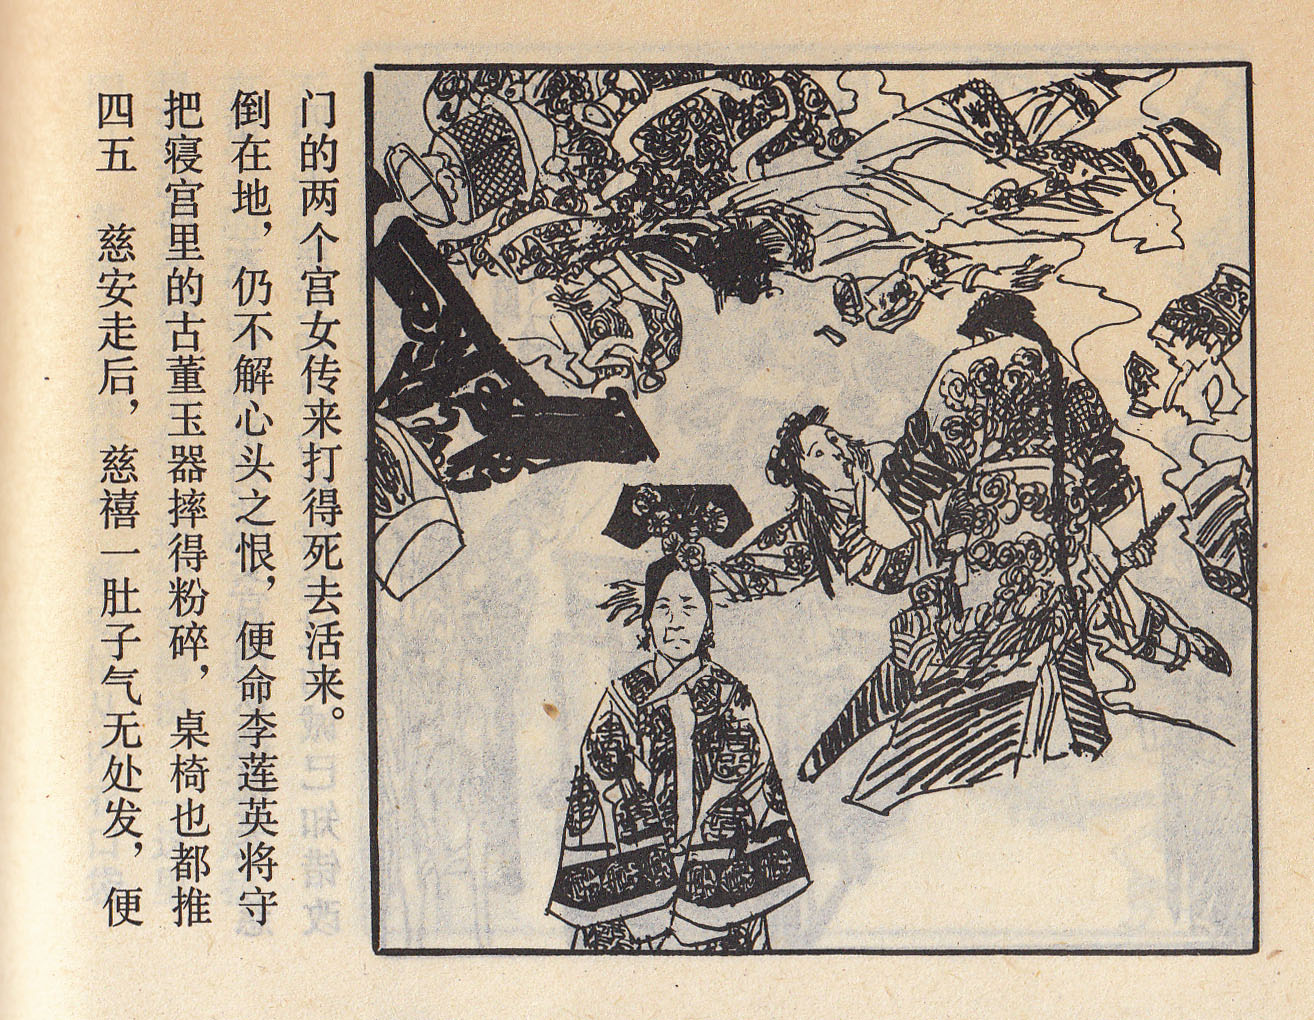 四五　慈安走后，慈禧一肚子气无处发，便
把寝宫里的古董玉器摔得粉碎，桌椅也都推
倒在地，仍不解心头之恨，便命李莲英将守
门的两个宫女传来打得死去活来。